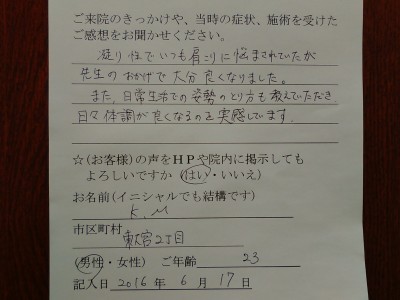 ご来院のきっかけや、当時の症状、施術を受けた
ご感想をお聞かせください。
凝り性でいつも肩こりに悩まされていたが
先生のおかげで大分良くなりました。
また、日常生活での姿勢のとり方も教えていただき
日々体調が良くなるのを実感しています。
☆(お客様)の声をHPや院内に掲示しても
よろしいですか (はい・いいえ)
お名前(イニシャルでも結構です)
K.M
市区町村 東大宮2丁目
(男性・女性) ご年齢 23
記入日 2016年 6月 17日